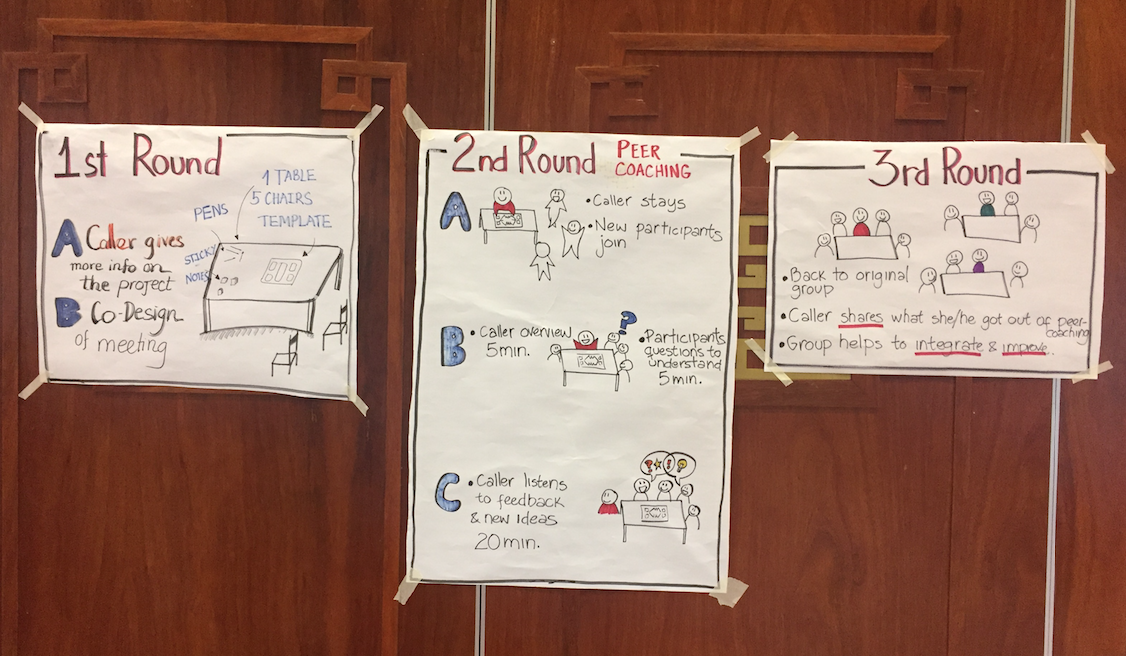 1st Round
1 TABLE
5 CHAIRS
TEMPLATE
PENS
STICKY
NOTES
A Caller gives
more info on
the project
B Co-Design
of meeting
2nd Round PEER
COACHING
A
• Caller stays
• New participants
join
B • Caller overview
5min.
?
• Participants
questions to
understand
5 min.
C • Caller listens
to feedback
& new ideas
20 min.
3rd Round
• Back to original
group
• Caller shares what she/he got out of peer-
coaching
• Group helps to integrate & improve..